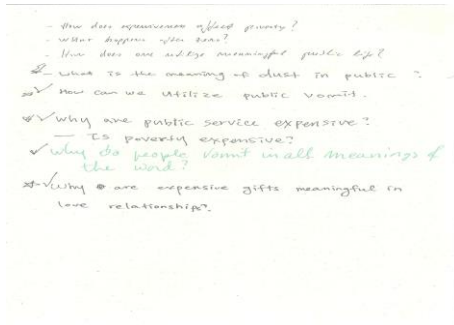 - How does expensiveness affect poverty?
- What happens after
- How does one utilize meaningful public life?
- What is the meaning of dust in public ?
✓ How can we utilize public vomit.
✓ Why are public service expensive?
— Is poverty expensive?
✓ Why do people vomit in all meanings of
the word?
✓ Why are expensive gifts meaningful in
love relationships?